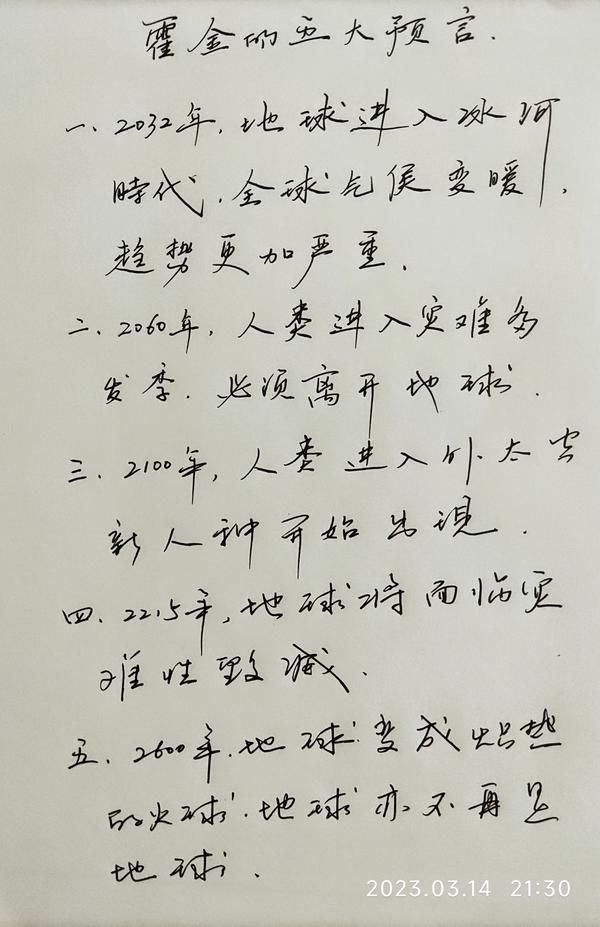 霍金的五大预言.
一、2032年,地球进入冰河
時代.全球气侯变暖,
趋势更加严重.
二、2060年,人类进入灾难多
发季.必须离开地球.
三、2100年,人类进入外太空
新人种开始出現.
四、2215年,地球将面临灾
难性毁滅.
五、2600年.地球变成炽热
的火球.地球亦不再是
地球.
2023.03.14 21:30